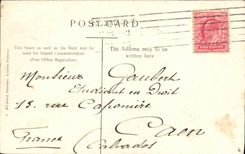 POST CARD
This Space as well as the Back may be
used for Inland Communication.
(Post Office Regulation)
The Address only to be
written here
Monsieur Gaubert
Etudiant en Droit
13. rue Caponière
Caen
France
Calvados